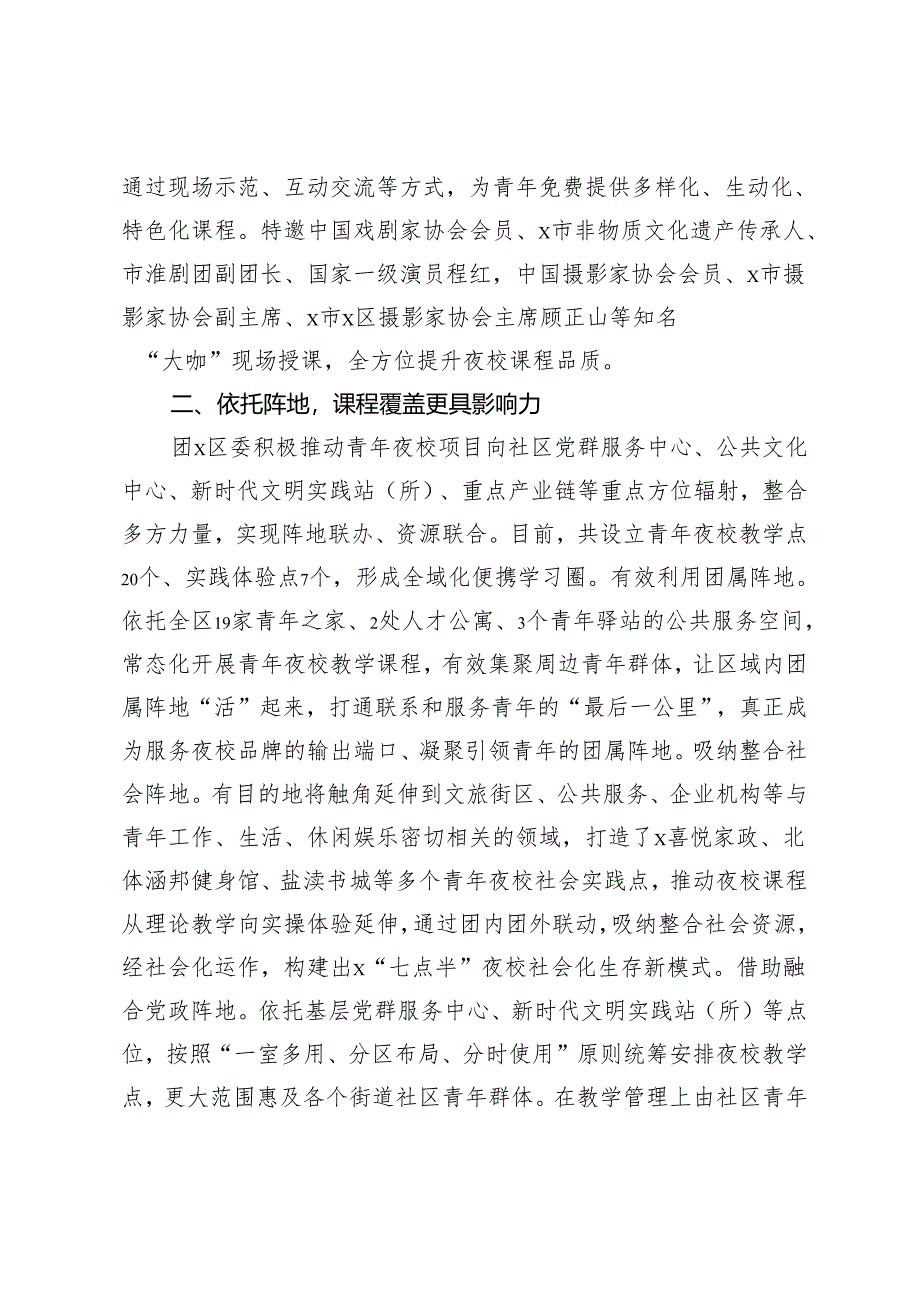 通过现场示范、互动交流等方式，为青年免费提供多样化、生动化、
特色化课程。特邀中国戏剧家协会会员、x市非物质文化遗产传承人、
市淮剧团副团长、国家一级演员程红，中国摄影家协会会员、x市摄
影家协会副主席、x市x区摄影家协会主席顾正山等知名
“大咖”现场授课，全方位提升夜校课程品质。
二、依托阵地，课程覆盖更具影响力
团x区委积极推动青年夜校项目向社区党群服务中心、公共文化
中心、新时代文明实践站（所）、重点产业链等重点方位辐射，整合
多方力量，实现阵地联办、资源联合。目前，共设立青年夜校教学点
20个、实践体验点7个，形成全域化便携学习圈。有效利用团属阵地。
依托全区19家青年之家、2处人才公寓、3个青年驿站的公共服务空间，
常态化开展青年夜校教学课程，有效集聚周边青年群体，让区域内团
属阵地“活”起来，打通联系和服务青年的“最后一公里”，真正成
为服务夜校品牌的输出端口、凝聚引领青年的团属阵地。吸纳整合社
会阵地。有目的地将触角延伸到文旅街区、公共服务、企业机构等与
青年工作、生活、休闲娱乐密切相关的领域，打造了x喜悦家政、北
体涵邦健身馆、盐渎书城等多个青年夜校社会实践点，推动夜校课程
从理论教学向实操体验延伸，通过团内团外联动，吸纳整合社会资源，
经社会化运作，构建出x“七点半”夜校社会化生存新模式。借助融
合党政阵地。依托基层党群服务中心、新时代文明实践站（所）等点
位，按照“一室多用、分区布局、分时使用”原则统筹安排夜校教学
点，更大范围惠及各个街道社区青年群体。在教学管理上由社区青年